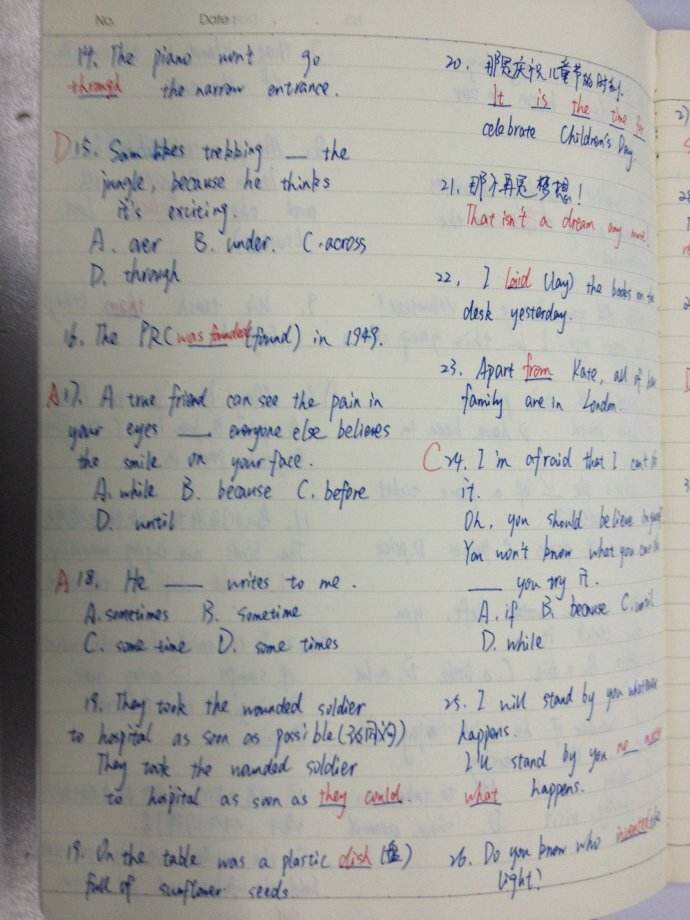 No.
Date
14. The piano won't go
through the narrow entrance.
D 15. Sam likes trekking __ the
jungle, because he thinks
it's exciting.
A. over B. under. C. across
D. through
16. The PRC was founded (found) in 1949.
A 17. A true friend can see the pain in
your eyes __ everyone else believes
the smile on your face.
A. while B. because C. before
D. until
A 18. He __ writes to me.
A. sometimes B. sometime
C. some time D. some times
19. They took the wounded soldier
to hospital as soon as possible (改同义句)
They took the wounded soldier
to hospital as soon as they could.
19. On the table was a plastic dish (盘)
full of sunflower seeds.
20. 那是庆祝儿童节的时刻.
It is the time to
celebrate Children's Day.
21. 那不再是梦想!
That isn't a dream any more.
22. I laid (lay) the books on the
desk yesterday.
23. Apart from Kate, all of her
family are in London.
C 24. I'm afraid that I can't do
it.
Oh, you should believe
You won't know what you can do
__ you try it.
A. if B. because C. until
D. while
25. I will stand by you whatever
happens.
I'll stand by you no matter
what happens.
26. Do you know who invented
light?